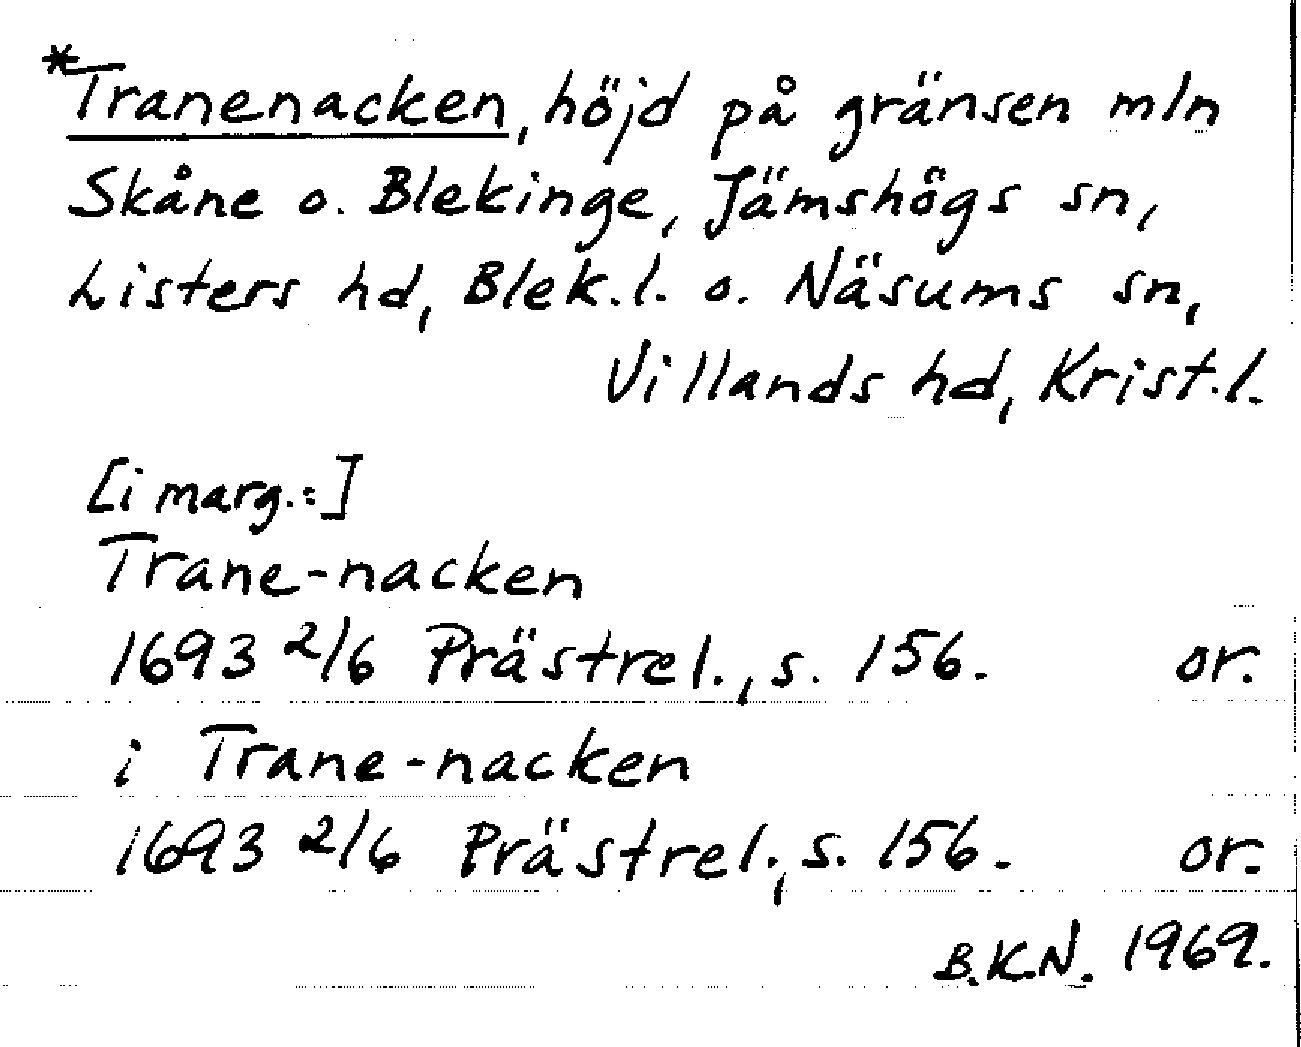 *Tranenacken, höjd på gränsen mln
Skåne o. Blekinge, Jämshögs sn,
Listers hd, Blek.l. o. Näsums sn,
Villands hd, Krist.l.
[i marg.:]
Trane-nacken
1693 2/6 Prästrel., s. 156. or.
i Trane-nacken
1693 2/6 Prästrel., s. 156. or.
B.K.N. 1969.